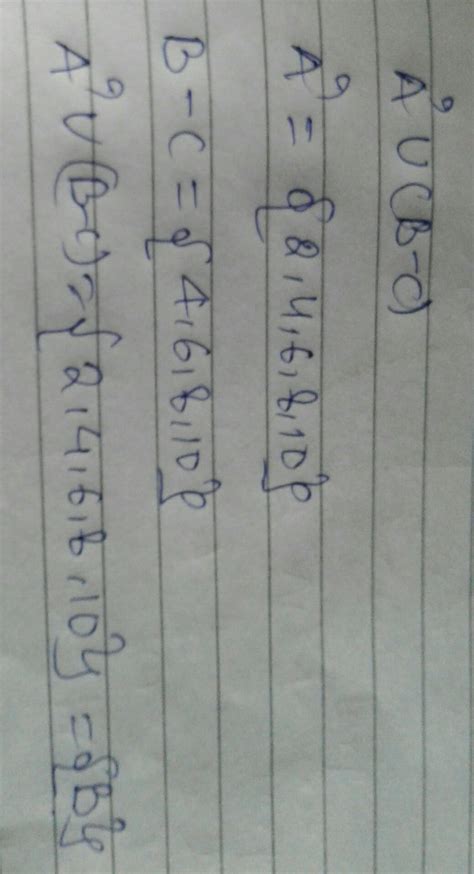 A' ∪ (B-C)
A' = {2,4,6,8,10}
B - C = {4,6,8,10}
A' ∪ (B-C) = {2,4,6,8,10} = {B}